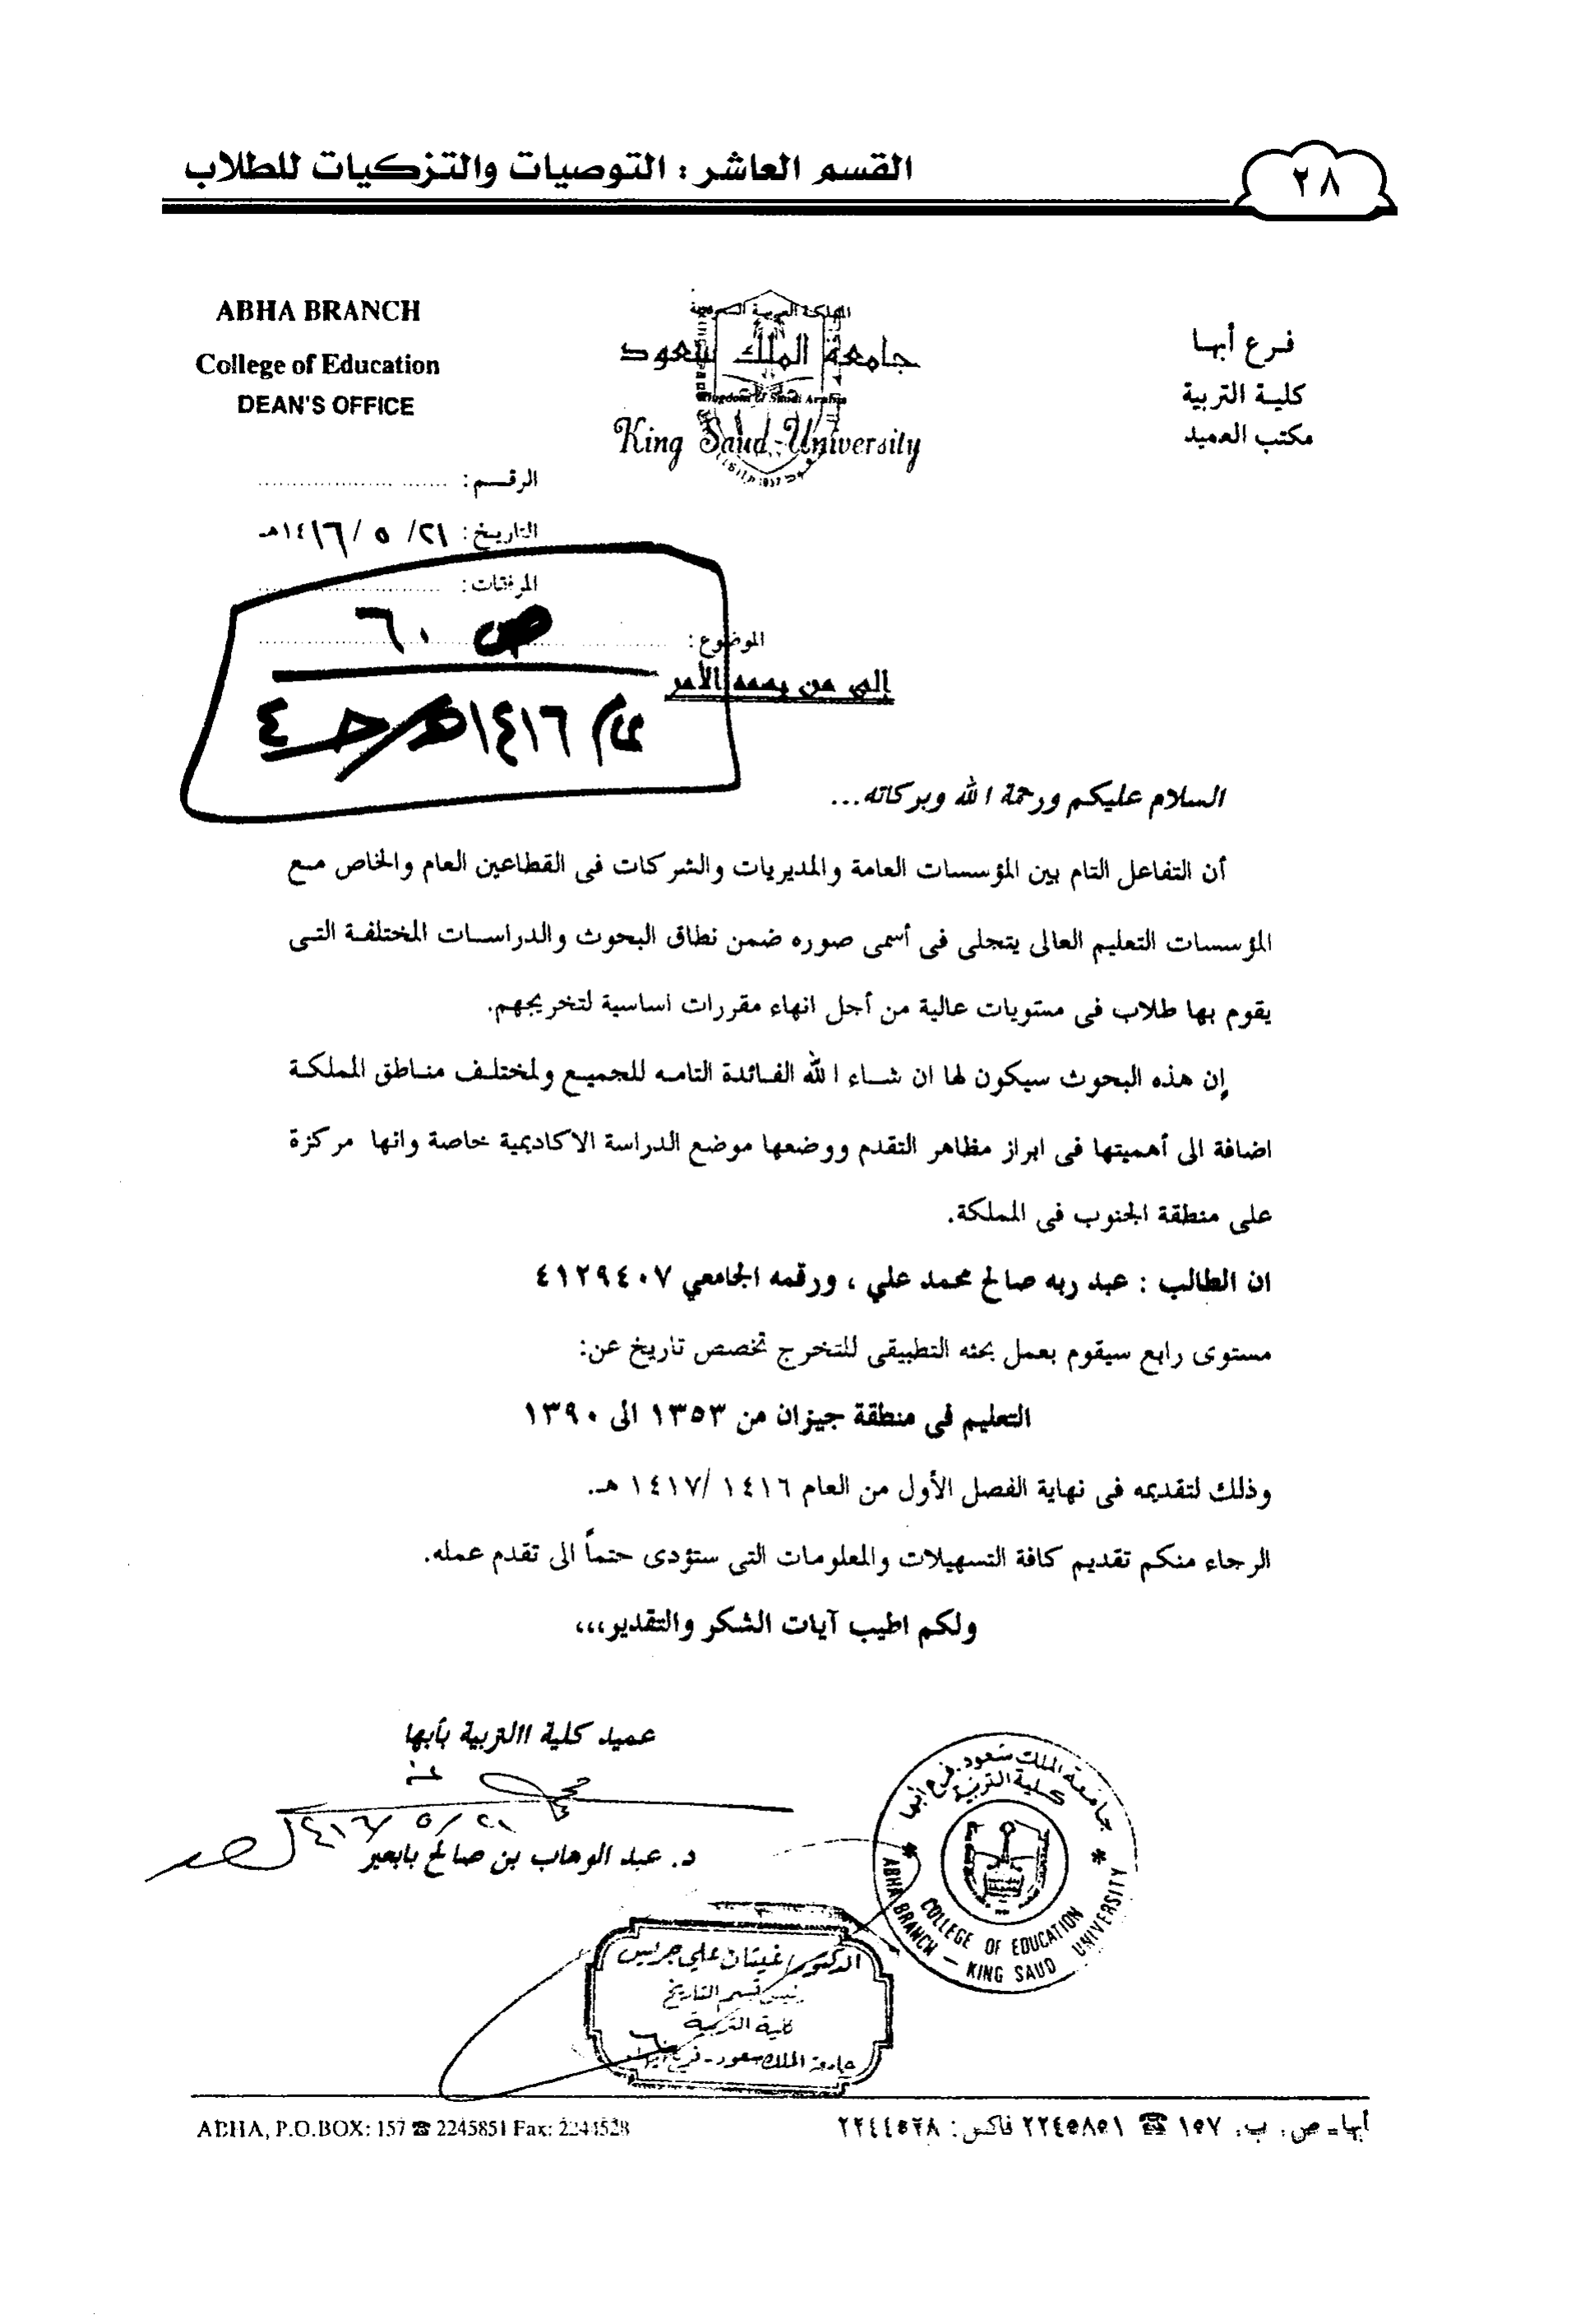 القسم العاشر : التوصيات والتزكيات للطلاب
٢٨
ABHA BRANCH
College of Education
DEAN'S OFFICE
المملكة العربية السعودية
جامعة الملك سعود
Kingdom of Saudi Arabia
King Saud University
فرع أبها
كلية التربية
مكتب العميد
الرقم:
التاريخ: ٢١/ ٥ /١٤١٦هـ
المرفقات:
الموضوع:
ص ٦٠
عام ١٤١٦هـ / حـ ٤
إلى من يهمه الأمر
السلام عليكم ورحمة الله وبركاته...
أن التفاعل التام بين المؤسسات العامة والمديريات والشركات فى القطاعين العام والخاص مع
المؤسسات التعليم العالى يتجلى فى أسمى صوره ضمن نطاق البحوث والدراسات المختلفة التى
يقوم بها طلاب فى مستويات عالية من أجل انهاء مقررات اساسية لتخريجهم.
إن هذه البحوث سيكون لها ان شاء الله الفائدة التامه للجميع ولمختلف مناطق المملكة
اضافة الى أهميتها فى ابراز مظاهر التقدم ووضعها موضع الدراسة الاكاديمية خاصة وانها مركزة
على منطقة الجنوب فى المملكة.
ان الطالب : عبد ربه صالح محمد علي ، ورقمه الجامعي ٤١٢٩٤٠٧
مستوى رابع سيقوم بعمل بحثه التطبيقى للتخرج تخصص تاريخ عن:
التعليم فى منطقة جيزان من ١٣٥٣ الى ١٣٩٠
وذلك لتقديمه فى نهاية الفصل الأول من العام ١٤١٦ /١٤١٧ هـ.
الرجاء منكم تقديم كافة التسهيلات والمعلومات التى ستؤدى حتماً الى تقدم عمله.
ولكم اطيب آيات الشكر والتقدير،،،
عميد كلية االتربية بأبها
٢١ /٥ /١٤١٦
د. عبد الوهاب بن صالح بابعير
جامعة الملك سعود. فرع أبها
كلية التربية
ABHA BRANCH - KING SAUD UNIVERSITY
COLLEGE OF EDUCATION
الدكتور/ غيثان علي جريس
رئيس قسم التاريخ
كلية التربية
جامعة الملك سعود - فرع أبها
ABHA, P.O.BOX: 157 ☎ 2245851 Fax: 2244528
أبها ـ ص. ب. ١٥٧ ☎ ٢٢٤٥٨٥١ فاكس: ٢٢٤٤٥٢٨